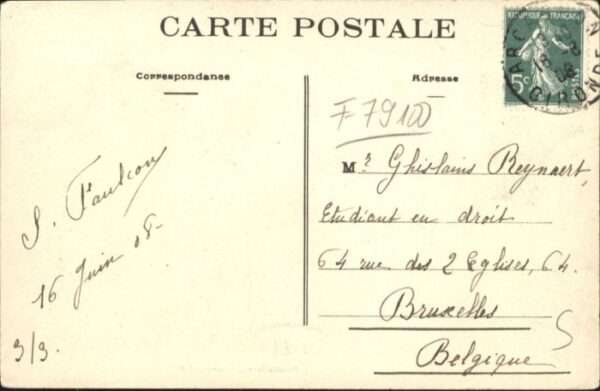 CARTE POSTALE
Correspondance
Adresse
REPUBLIQUE FRANÇAISE
5c
GIRONDE
F79100
Mr Ghislains Reynaert,
Etudiant en droit
64 rue des 2 Eglises, 64.
Bruxelles
Belgique
S. Faulcon
16 Juin 08-
3/3.
5